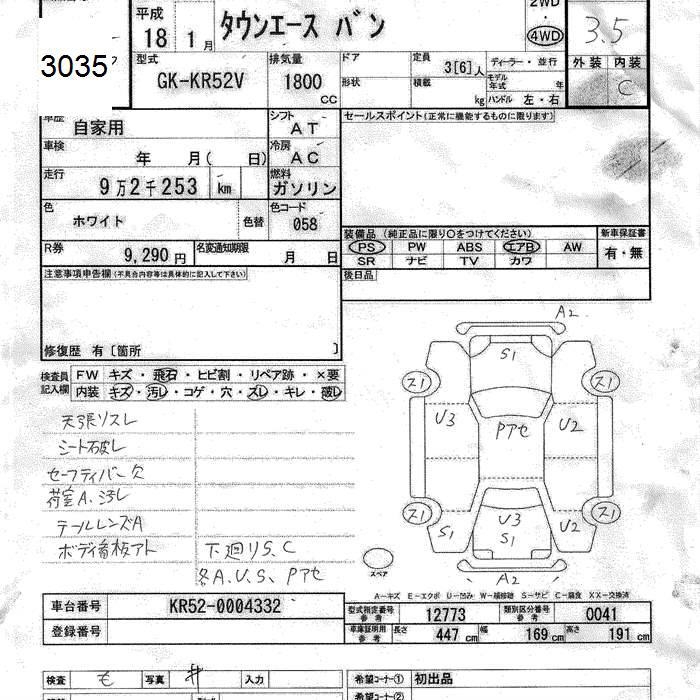 平成 タウンエース バン 2WD ・ 4WD 3.5
18 1月
3035 型式 GK-KR52V 排気量 1800 CC ドア 形状 定員 3[6]人 積載 kg ディーラー・並行 モデル年式 年 ハンドル 左・右 外装 内装 C
車歴 自家用 シフト AT セールスポイント(正常に機能するものに限ります)
車検 年 月( 日) 冷房 AC
走行 9万2千253 km 燃料 ガソリン
色 ホワイト 色替 色コード 058
装備品 (純正品に限り○をつけてください) 新車保証書
PS PW ABS エアB AW 有・無
SR ナビ TV カワ
R券 9,290円 名変通知期限 月 日
後日品
注意事項申告欄(不具合内容等は具体的に記入して下さい)
修復歴 有〔箇所 〕
検査員記入欄 FW キズ・飛石・ヒビ割・リペア跡・×要
内装 キズ・汚レ・コゲ・穴・スレ・キレ・破レ
天張リスレ
シート破レ
セーフティバー欠
荷室A.汚レ
テールレンズA
ボディ看板アト 下廻りS.C
各A.U.S、Pアセ
A2
S1
ス1 ス1
U3 Pアセ U2
ス1 ス1
U3
S1 S1 U2
A2
スペア
A-キズ E-エクボ U-凹み W-補修跡 S-サビ C-腐食 XX-交換済
車台番号 KR52-0004332
登録番号
型式指定番号 参考 12773 類別区分番号 参考 0041
車庫証明用 参考 長さ 447 cm 幅 169 cm 高さ 191 cm
検査 も 写真 井 入力
希望コーナー① 初出品
希望コーナー②